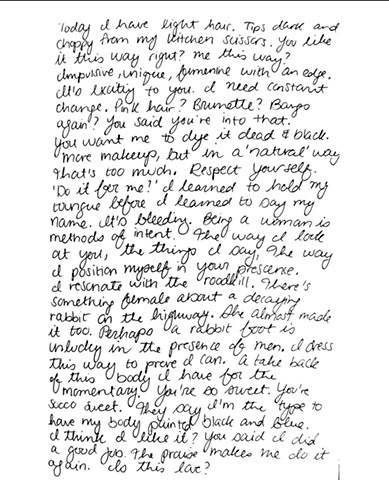 Today I have light hair. Tips dark and
choppy from my kitchen scissors. You like
it this way right? Me this way?
Impulsive, unique, femenine with an edge.
It's exciting to you. I need constant
change. Pink hair? Brunette? Bangs
again? You said you're into that.
You want me to dye it dead & black.
More makeup, but in a 'natural' way
that's too much. Respect yourself.
'Do it for me?' I learned to hold my
tongue before I learned to say my
name. It's bleeding. Being a woman is
methods of intent. The way I look
at you, the things I say, the way
I position myself in your prescence.
I resonate with the roadkill. There's
something female about a decaying
rabbit on the highway. She almost made
it too. Perhaps a rabbit foot is
unlucky in the presence of men. I dress
this way to prove I can. A take back
of this body I have for the
momentary. You're so sweet. You're
sooo sweet. They say I'm the 'type to
have my body painted black and blue.
I think I like it? You said I did
a good job. The praise makes me do it
again. Is this love?